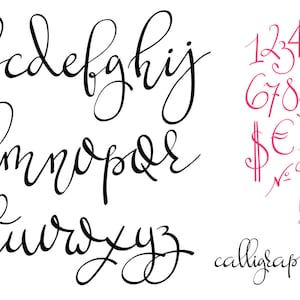 cdefghij
mnopqr
uvwxyz
1234
678
$€
№
calligrap